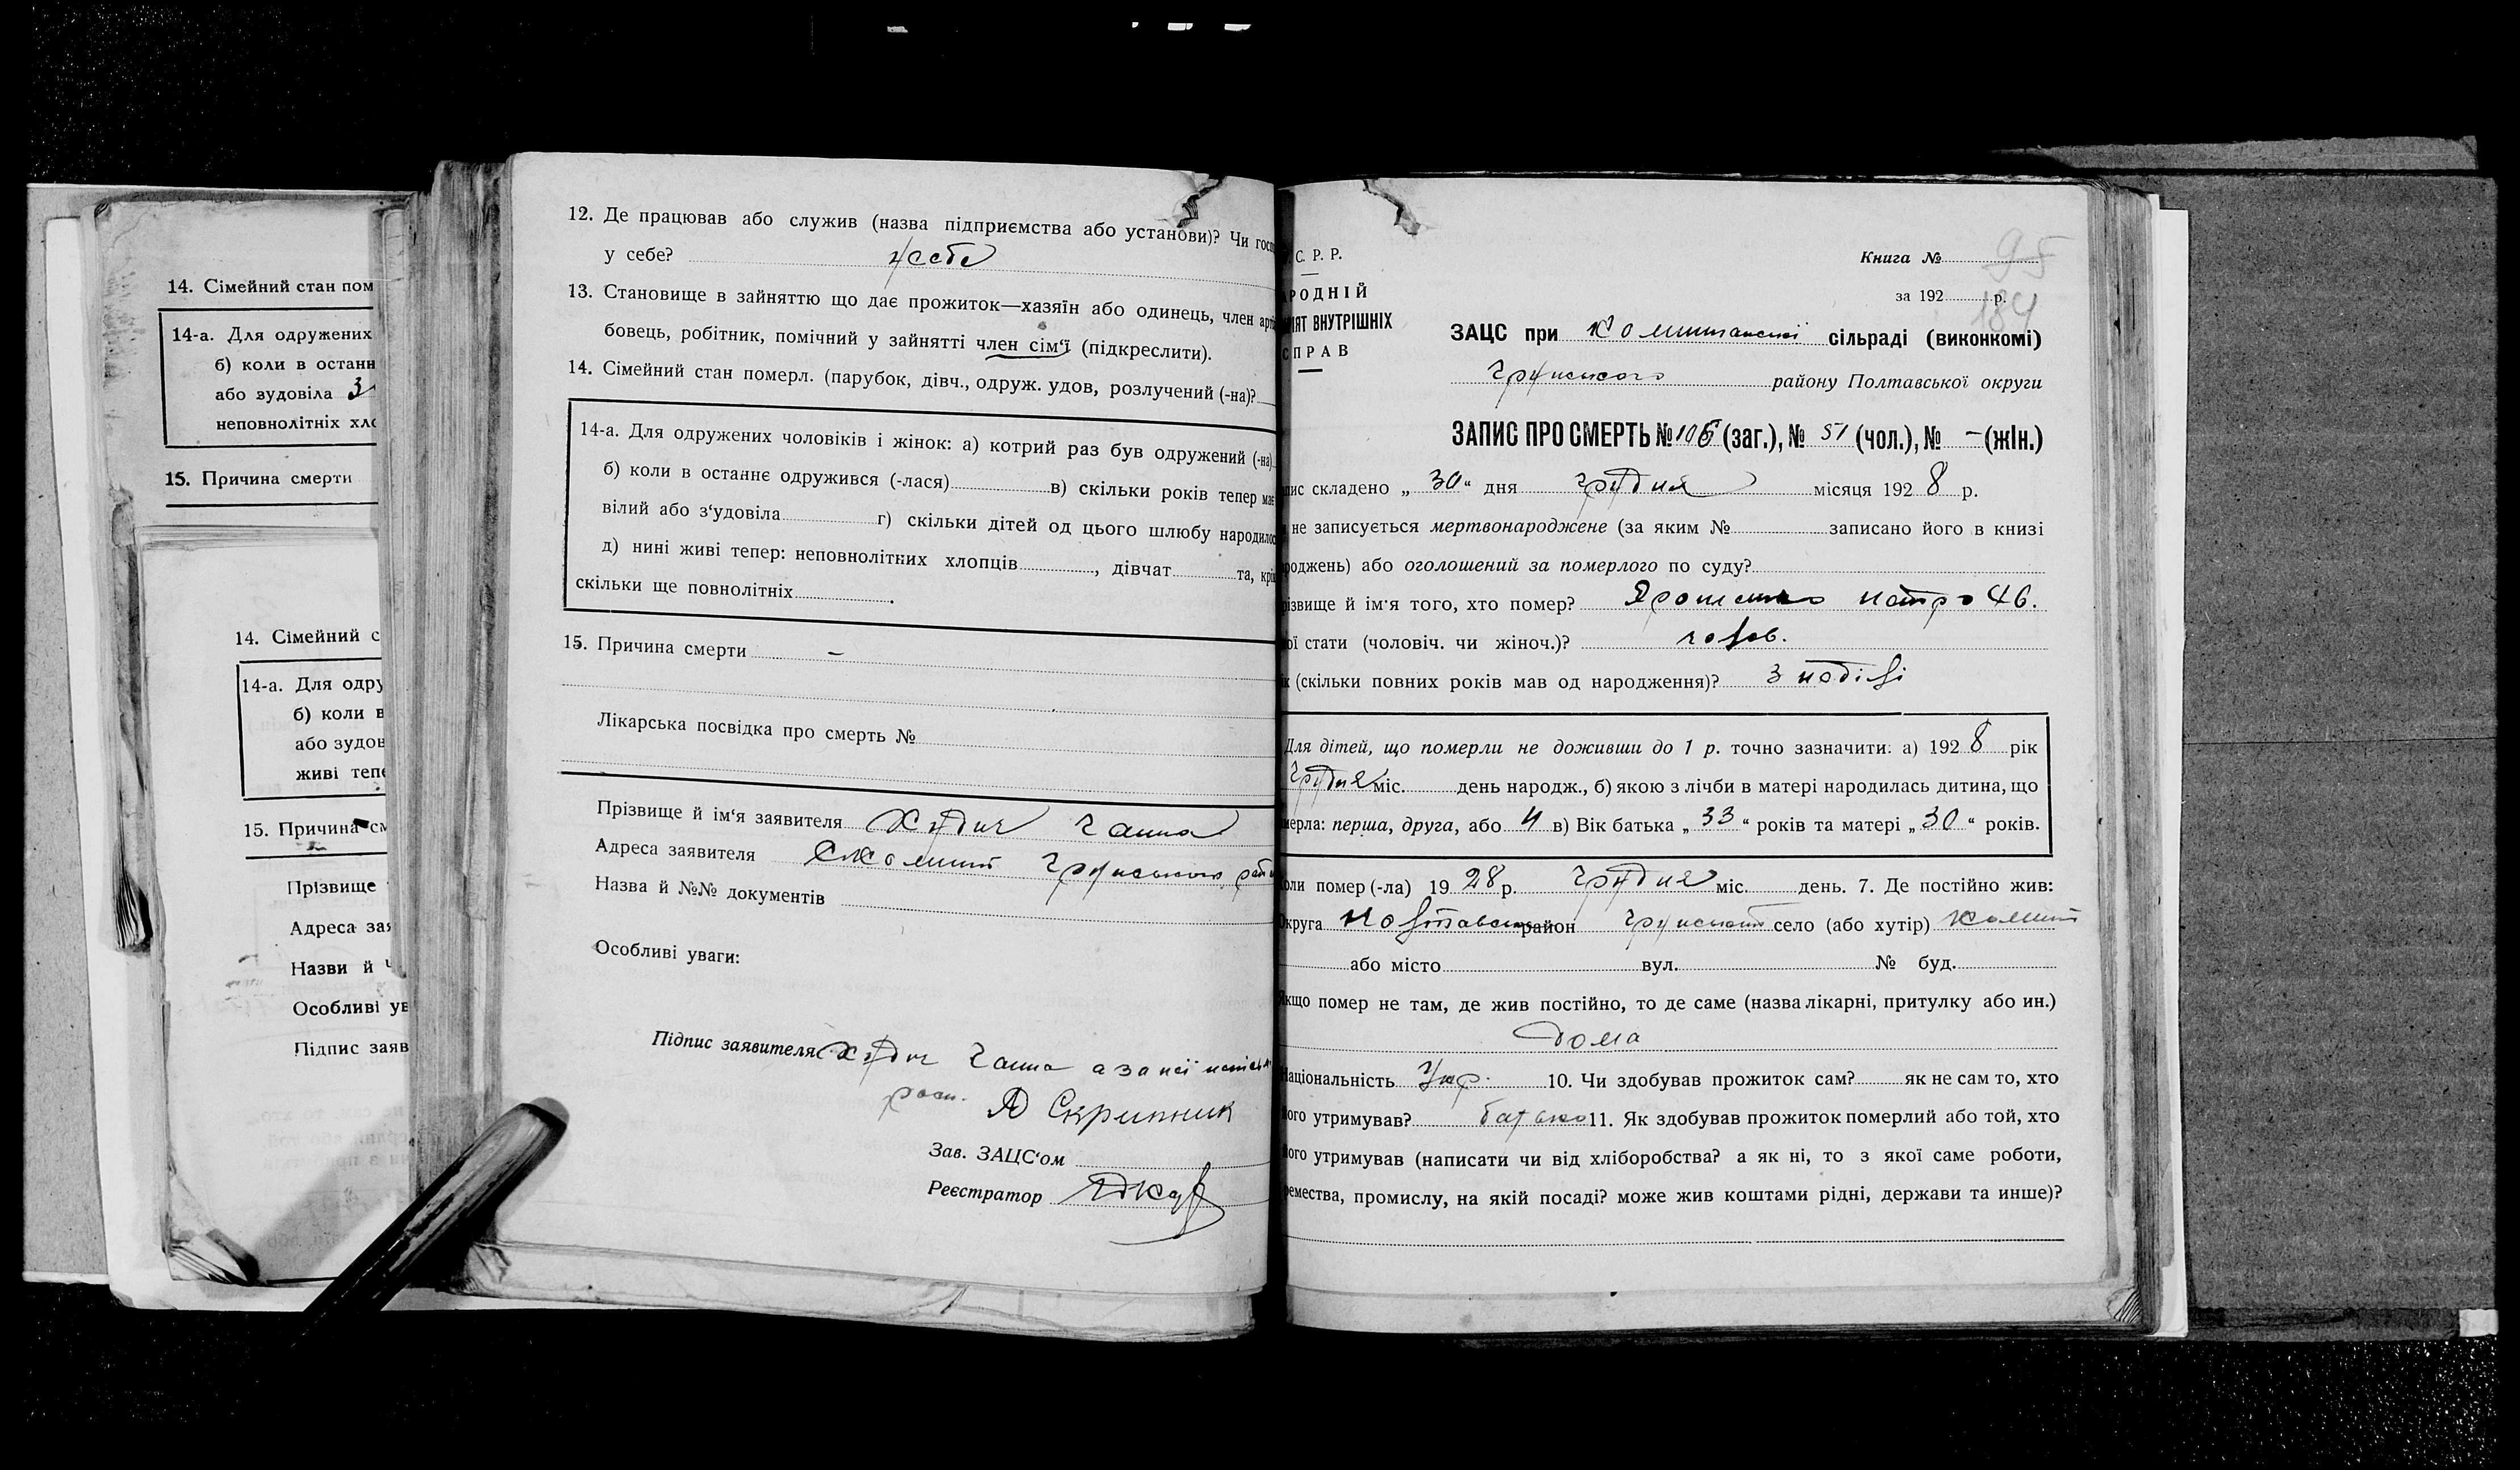 14. Сімейний стан пом
14-а. Для одружених
б) коли в останн
або зудовіла 3
неповнолітніх хло
15. Причина смерти
14. Сімейний с
14-а. Для одру
б) коли в
або зудов
живі тепе
15. Причина см
Прізвище
Адреса зая
Назви й
Особливі ув
Підпис заяв
12. Де працював або служив (назва підприємства або установи)? Чи госп
у себе? у себе
13. Становище в зайняттю що дає прожиток—хазяїн або одинець, член арті
бовець, робітник, помічний у зайнятті член сім'ї (підкреслити).
14. Сімейний стан померл. (парубок, дівч., одруж. удов, розлучений (-на)?
14-а. Для одружених чоловіків і жінок: а) котрий раз був одружений (-на)
б) коли в останнє одружився (-лася) в) скільки років тепер має
вілий або з'удовіла г) скільки дітей од цього шлюбу народилос
д) нині живі тепер: неповнолітних хлопців , дівчат та, крім
скільки ще повнолітніх .
15. Причина смерти –
Лікарська посвідка про смерть №
Прізвище й ім'я заявителя Худич Ганна
Адреса заявителя с Комиші Груського рай
Назва й №№ документів
Особливі уваги:
Підпис заявителя Худич Ганна а за неї
розп. Скрипник
Зав. ЗАЦС'ом
Реєстратор
С. Р. Р.
РОДНІЙ
ІЯТ ВНУТРІШНІХ
СПРАВ
Книга № 95
за 192 р.
184
ЗАЦС при Комишанскій сільраді (виконкомі)
Груського району Полтавської округи
ЗАПИС ПРО СМЕРТЬ № 105 (заг.), № 51 (чол.), № – (жін.)
пис складено „ 30 “ дня грудня місяця 192 8 р.
не записується мертвонароджене (за яким № записано його в книзі
роджень) або оголошений за померлого по суду?
різвище й ім'я того, хто помер? Ярошенко Петро
ої стати (чоловіч. чи жіноч.)? чолов.
ік (скільки повних років мав од народження)? 3 неділі
Для дітей, що померли не доживши до 1 р. точно зазначити: а) 192 8 рік
грудня міс. день народж., б) якою з лічби в матері народилась дитина, що
мерла: перша, друга, або 4 в) Вік батька „ 33 “ років та матері „ 30 “ років.
оли помер (-ла) 19 28 р. грудня міс. день. 7. Де постійно жив:
Округа Полтавська район Груський село (або хутір) Комиші
або місто вул. № буд.
Якщо помер не там, де жив постійно, то де саме (назва лікарні, притулку або ин.)
дома
Національність Укр. 10. Чи здобував прожиток сам? як не сам то, хто
його утримував? батько 11. Як здобував прожиток померлий або той, хто
його утримував (написати чи від хліборобства? а як ні, то з якої саме роботи,
ремества, промислу, на якій посаді? може жив коштами рідні, держави та инше)?